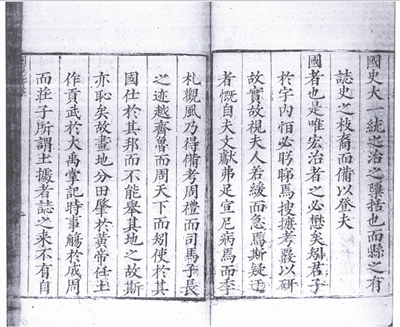 國史大一統之治之檃括也而縣之有
誌史之枝裔而備以登夫
國者也是唯宏治者之必懋矣矧君子
於宇內恆必睇睇焉搜摭考覈以研
故實故視夫人若緩而急焉斯疑迂
者慨自夫文獻弗足宣尼病焉而季
札觀風乃得備考周禮而司馬子長
之迹越齊魯而周天下而矧使於其
國仕於其邦而不能舉其地之故斯
亦恥矣故畫地分田肇於黃帝任土
作貢武於大禹掌記時事觴於成周
而莊子所謂土者誌之來不有自